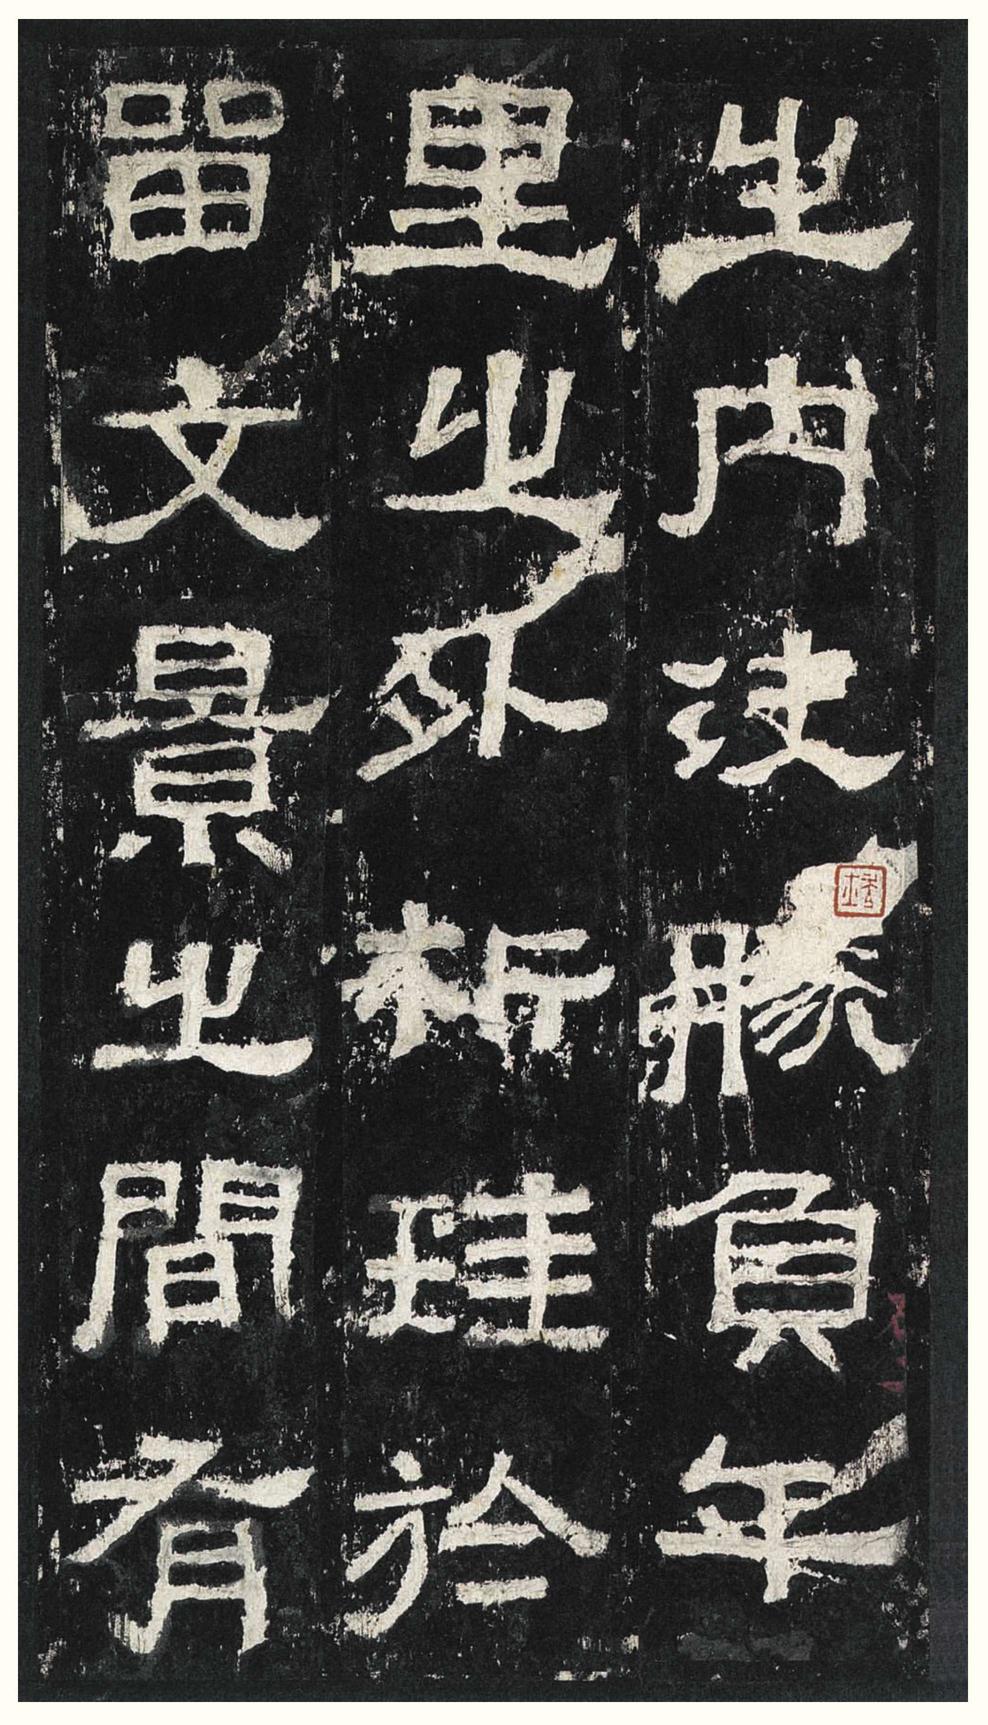 之內決勝負年
里之外析珪於
留文景之間有